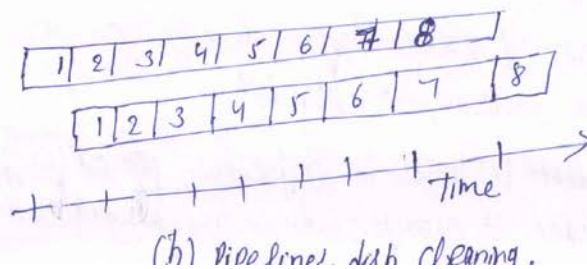 1 2 3 4 5 6 7 8
1 2 3 4 5 6 7 8
Time
(b) Pipelines dish cleaning.